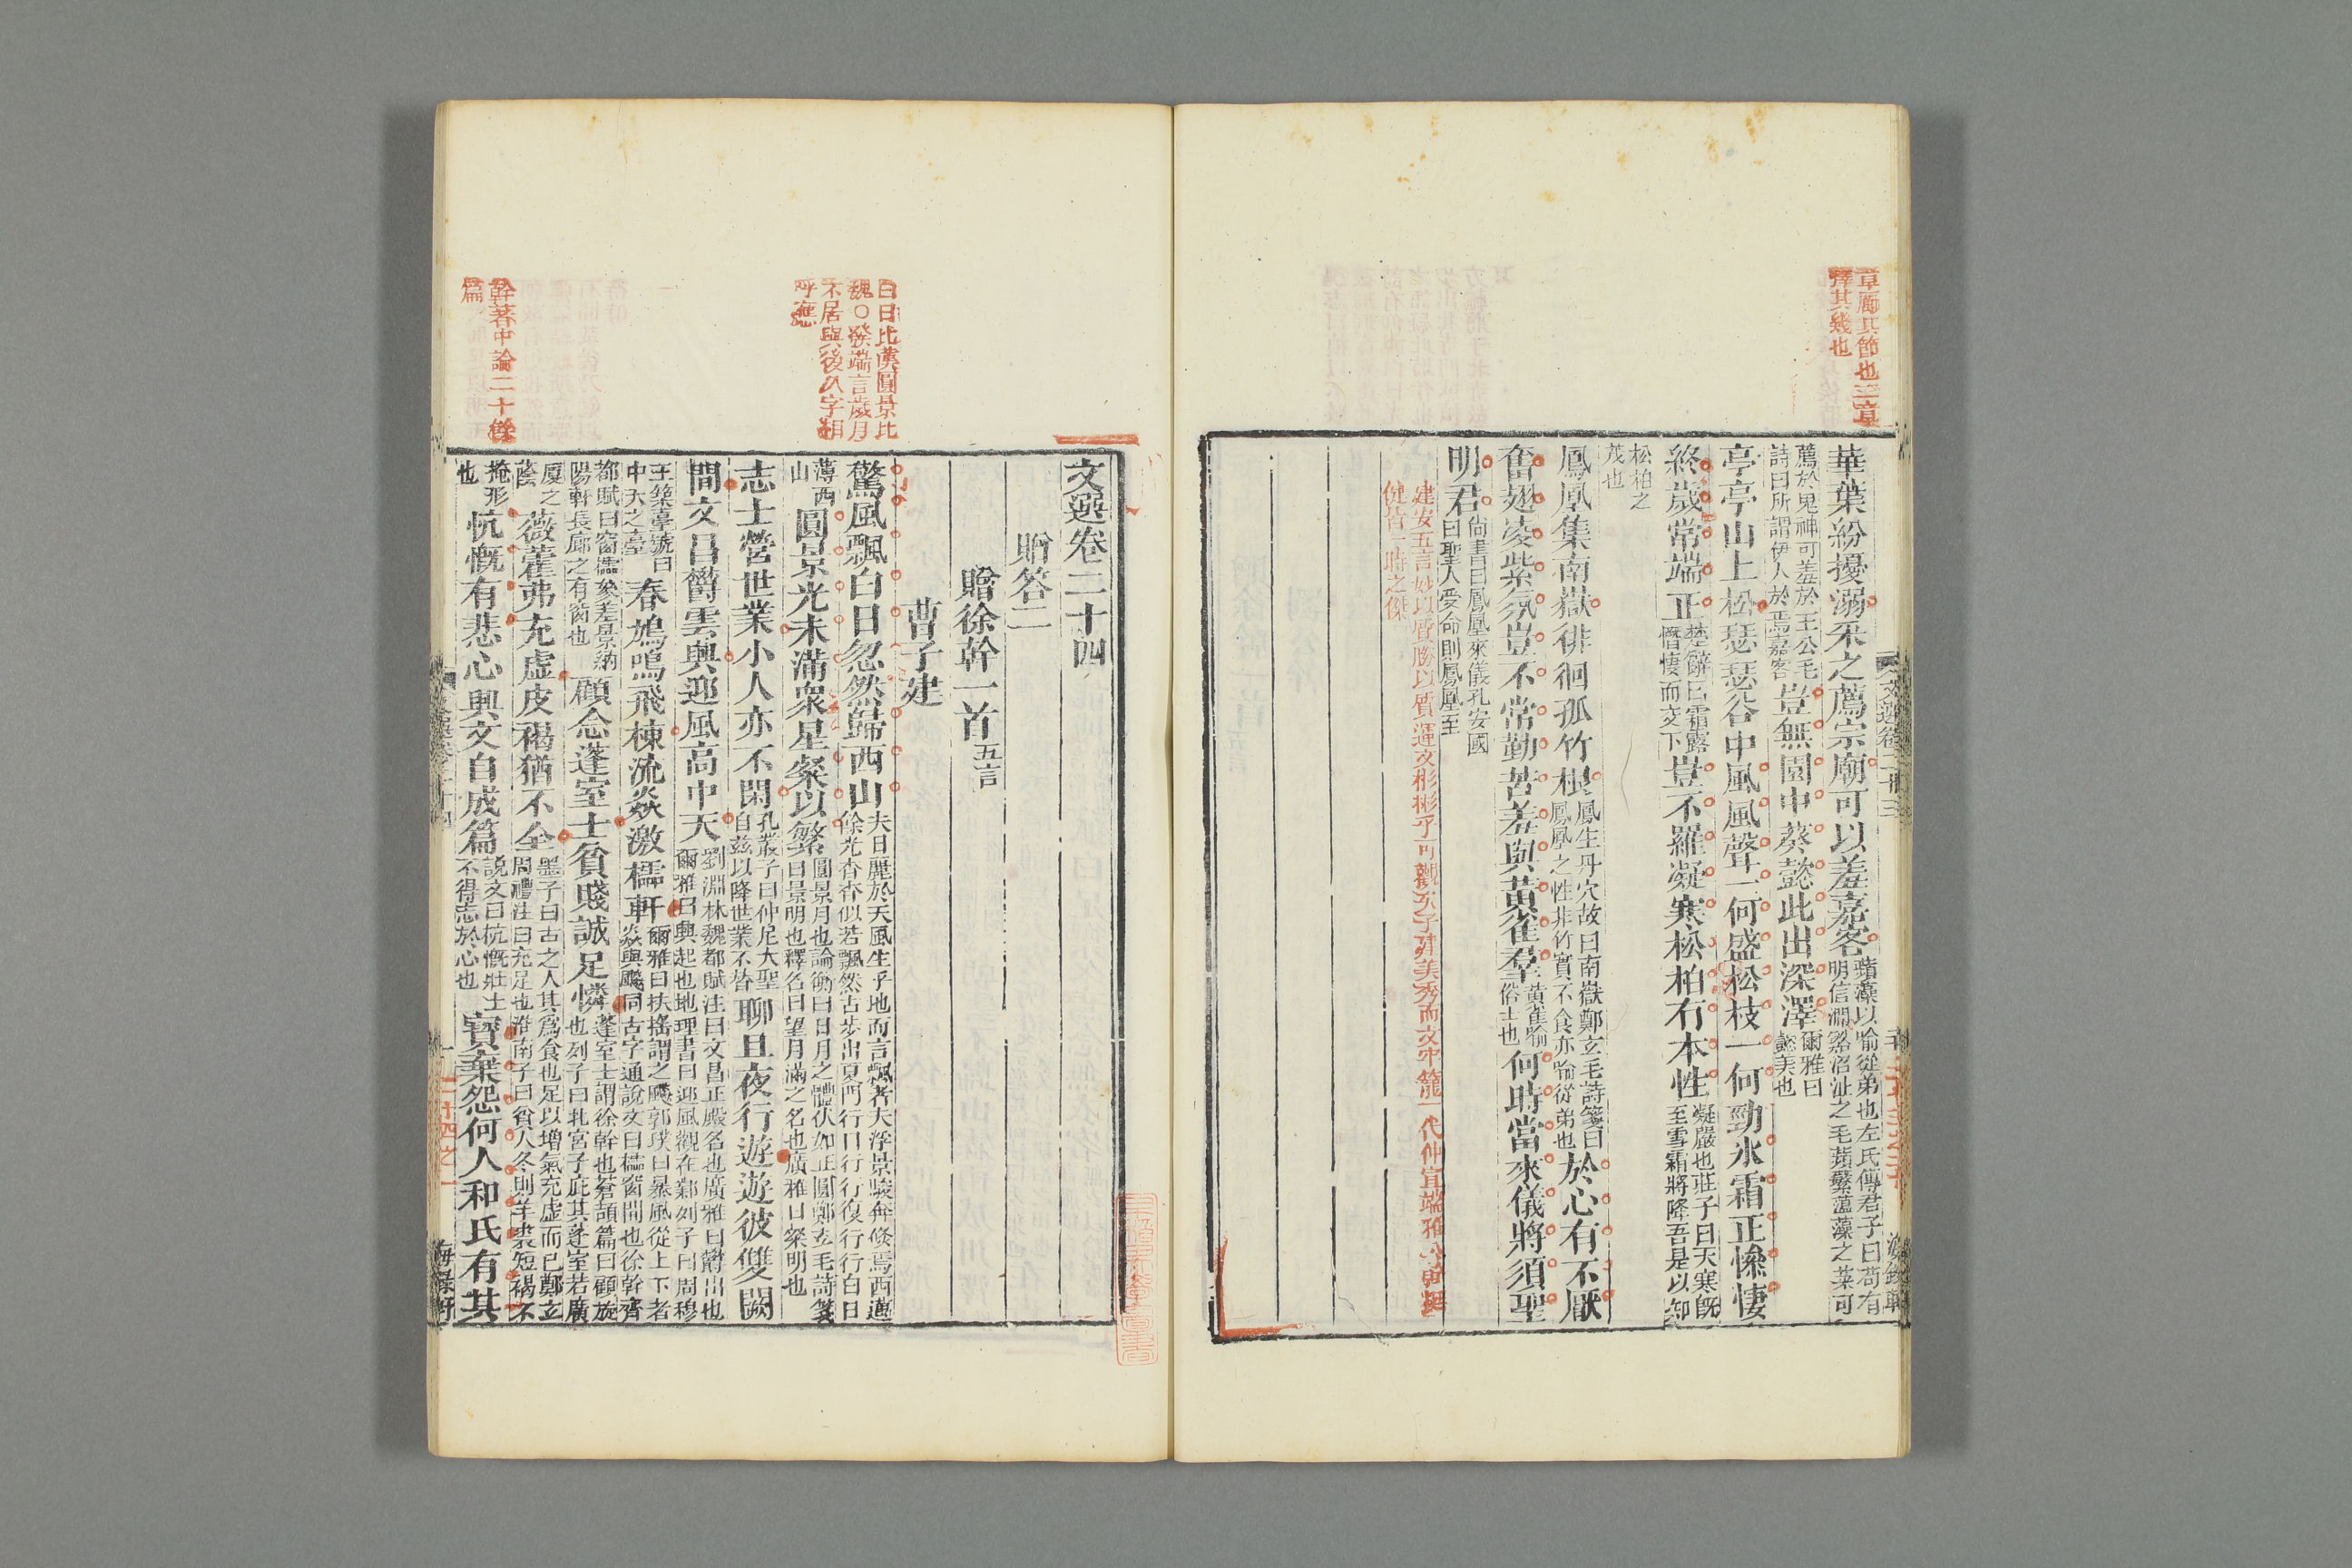 章厲其節也三章
擇其幾也
華葉紛擾溺采之薦宗廟可以羞嘉客蘋藻以喻從弟也左氏傳君子曰苟有
明信澗谿沼沚之毛蘋蘩薀藻之菜可
薦於鬼神可羞於王公毛
詩曰所謂伊人於焉嘉客豈無園中葵懿此出深澤爾雅曰
懿美也
亭亭山上松瑟瑟谷中風風聲一何盛松枝一何勁冰霜正慘悽
終歲常端正楚辭曰霜露
慘悽而交下豈不羅凝寒松柏有本性凝嚴也莊子曰天寒旣
至雪霜將降吾是以知
松柏之
茂也
鳳凰集南嶽徘徊孤竹根鳳生丹穴故曰南嶽鄭玄毛詩箋曰
鳳凰之性非竹實不食亦喻從弟也於心有不厭
奮翅凌紫氛豈不常勤苦羞與黃雀羣黃雀喻
俗士也何時當來儀將須聖
明君尚書曰鳳凰來儀孔安國
曰聖人受命則鳳凰至
建安五言妙以質勝以質運文彬彬乎可觀矣子建美秀而文牢籠一代仲宣端雅公幹挺
健皆一時之傑
文選卷二十四
贈答二
贈徐幹一首五言
曹子建
白日比漢圓景比
魏○發端言歲月
不居與後八字相
呼應
驚風飄白日忽然歸西山夫日麗於天風生乎地而言飄者夫浮景駿奔倏焉西邁
餘光杳杳似若飄然古步出夏門行曰行行復行行白日
薄西
山圓景光未滿衆星粲以繁圓景月也論衡曰日月之體狀如正圓鄭玄毛詩箋
曰景明也釋名曰望月滿之名也廣雅曰粲明也
志士營世業小人亦不閑孔叢子曰仲尼大聖
自茲以降世業不替聊且夜行遊遊彼雙闕
間文昌鬱雲興迎風高中天劉淵林魏都賦注曰文昌正殿名也廣雅曰鬱出也
爾雅曰興起也地理書曰迎風觀在鄴列子曰周穆
王築臺號曰
中天之臺春鳩鳴飛棟流猋激櫺軒爾雅曰扶搖謂之飇郭璞曰暴風從上下者
猋與飇同古字通說文曰櫺窗間也徐幹齊
都賦曰窗櫺參差景納
陽軒長廊之有窗也顧念蓬室士貧賤誠足憐蓬室士謂徐幹也蒼頡篇曰顧旋
也列子曰北宮子庇其蓬室若廣
厦之
蔭薇藿弗充虛皮褐猶不全墨子曰古之人其爲食也足以增氣充虛而已鄭玄
周禮注曰充足也淮南子曰貧人冬則羊裘短褐不
掩形
也忼慨有悲心興文自成篇說文曰忼慨壯士
不得志於心也寶棄怨何人和氏有其
幹著中論二十餘
篇
二十四之一